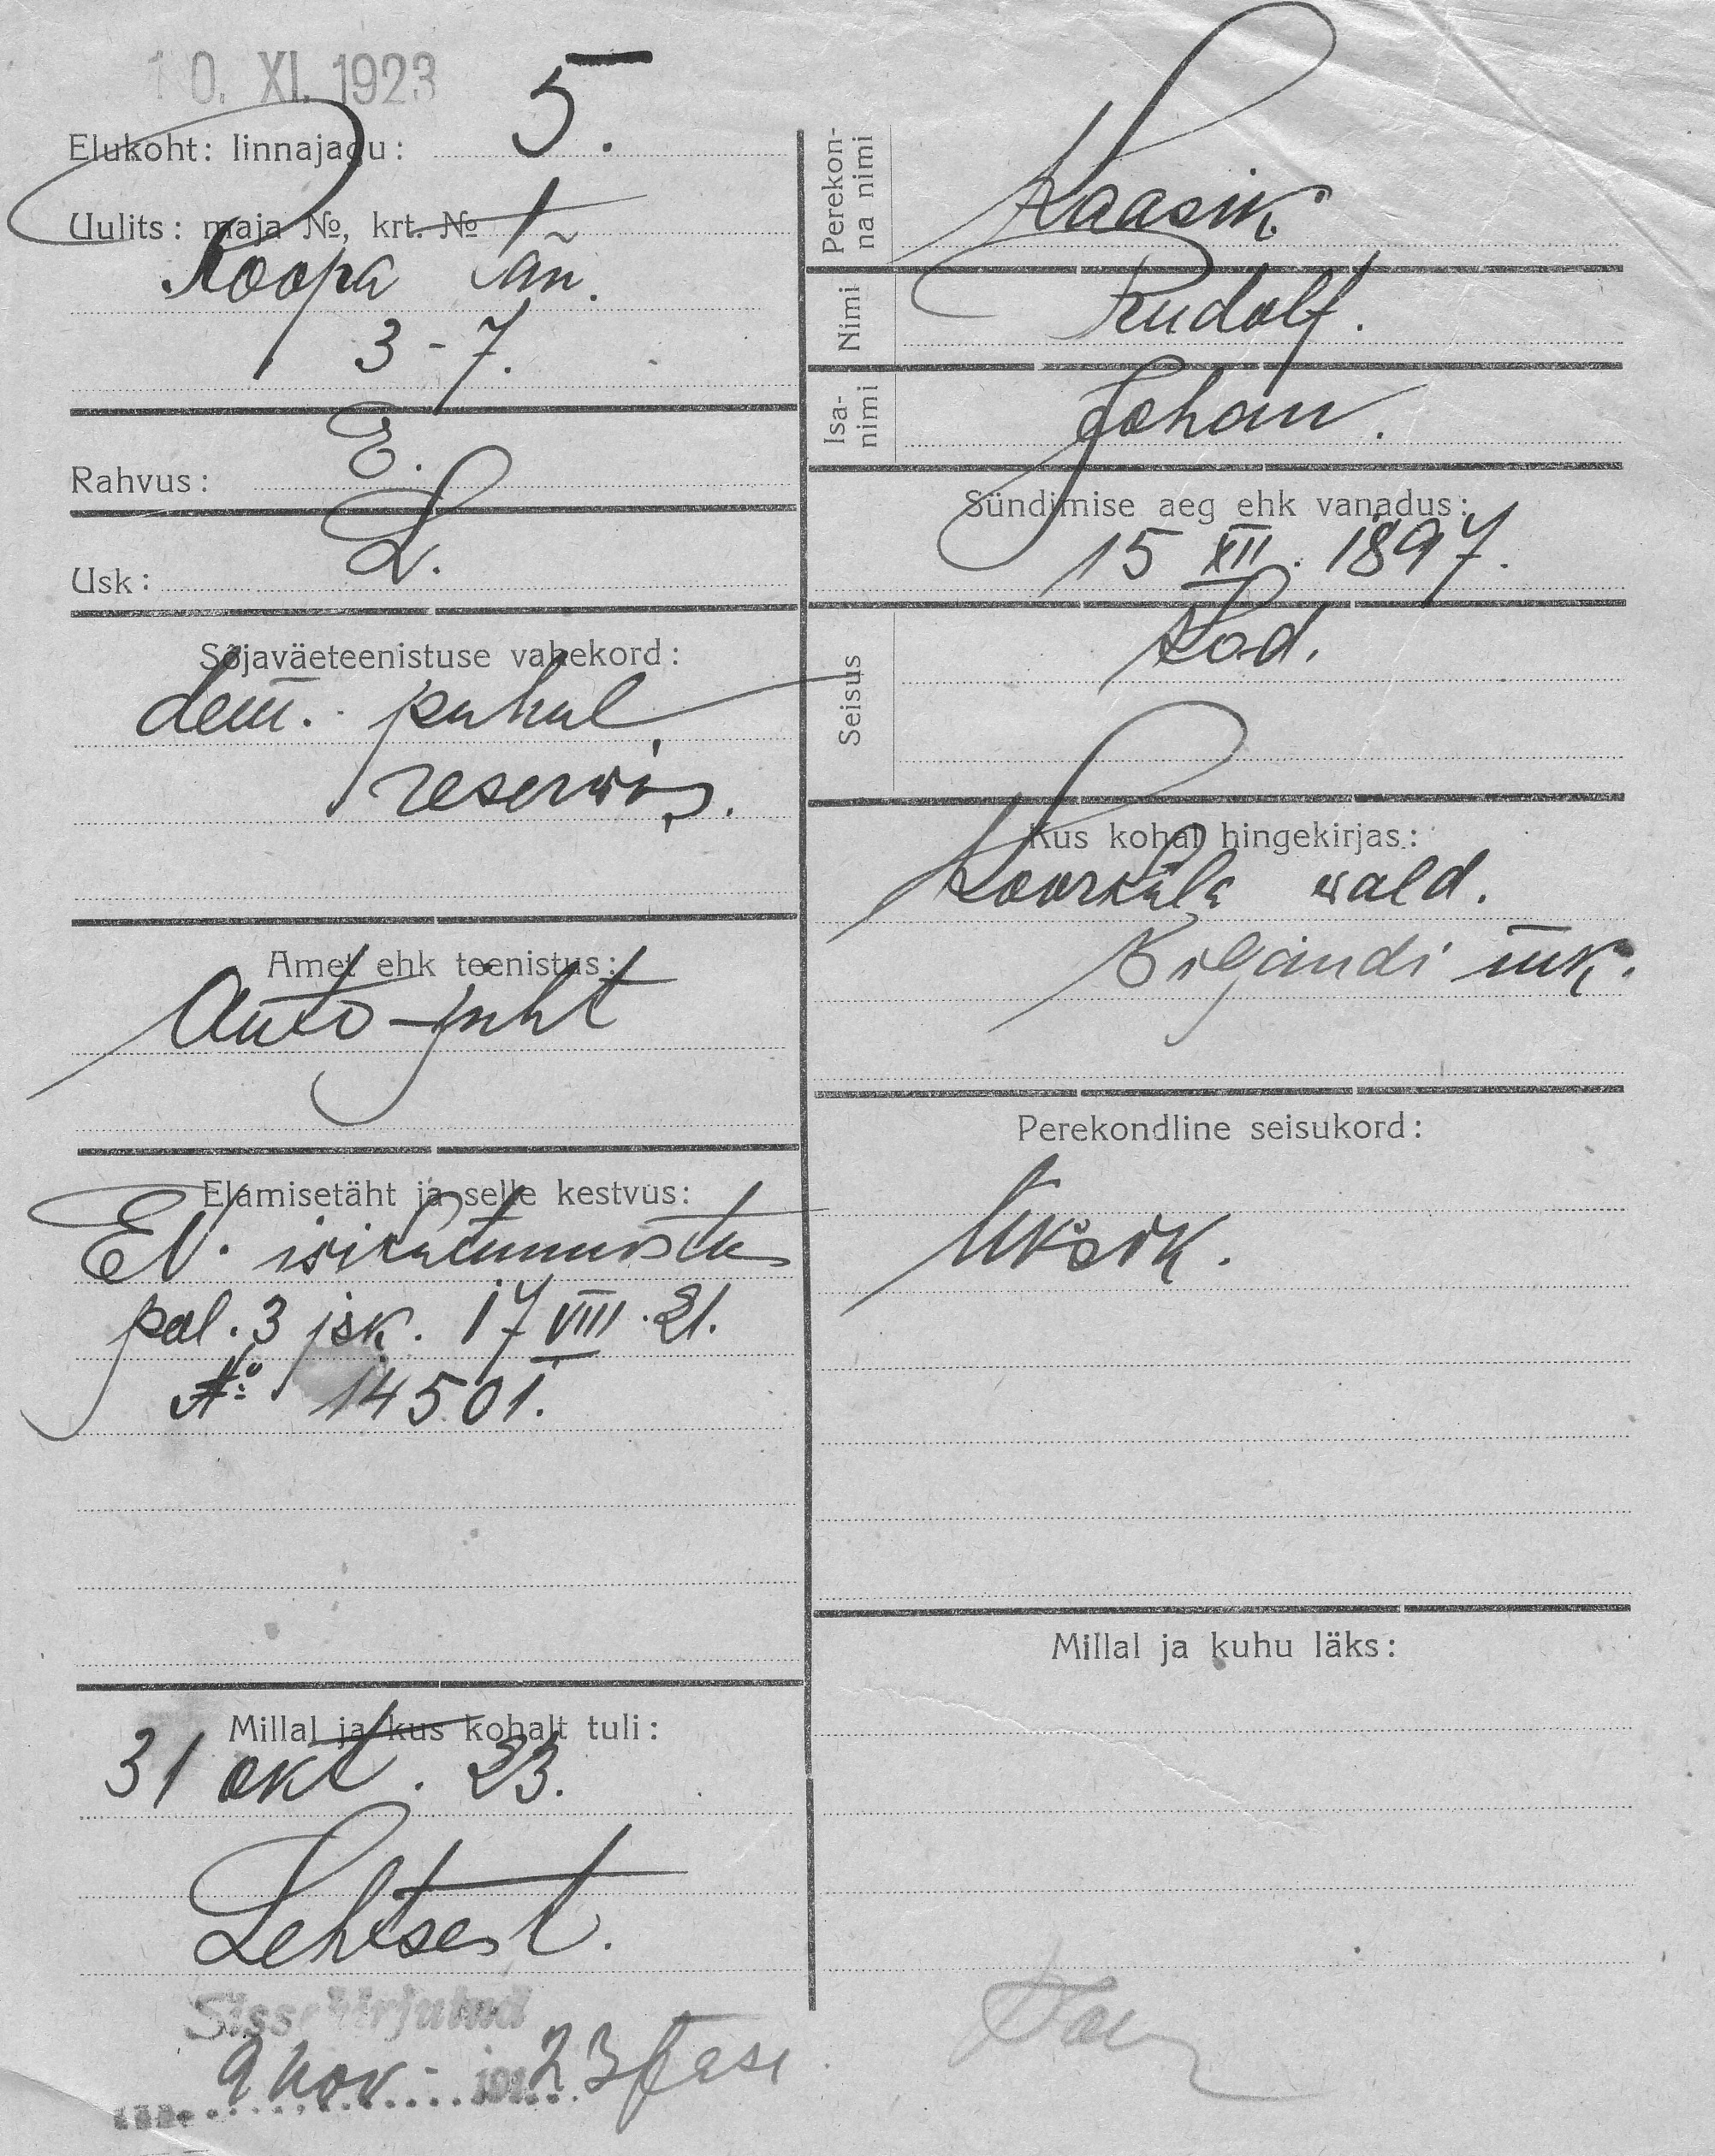 10. XI. 1923
Elukoht: linnajagu: 5.
Uulits: maja №, krt. №
Koopa tän.
3-7.
Rahvus: E.
Usk: L.
Sõjaväeteenistuse vahekord:
dem. puhul
reservis.
Amet ehk teenistus:
Auto-juht
Elamisetäht ja selle kestvus:
EV. isikutunnistus
pol. 3 jsk. 17 VIII. 21.
№ 14501.
Millal ja kus kohalt tuli:
31 okt. 23.
Lehtsest.
Sissekirjutud
9 nov - 191 23
Perekonna nimi Kaasik
Nimi Rudolf.
Isanimi Johan.
Sündimise aeg ehk vanadus:
15 XII. 1897.
Seisus Kod.
Kus kohal hingekirjas:
Koorküla wald.
Wiljandi mk.
Perekondline seisukord:
Üksik.
Millal ja kuhu läks: